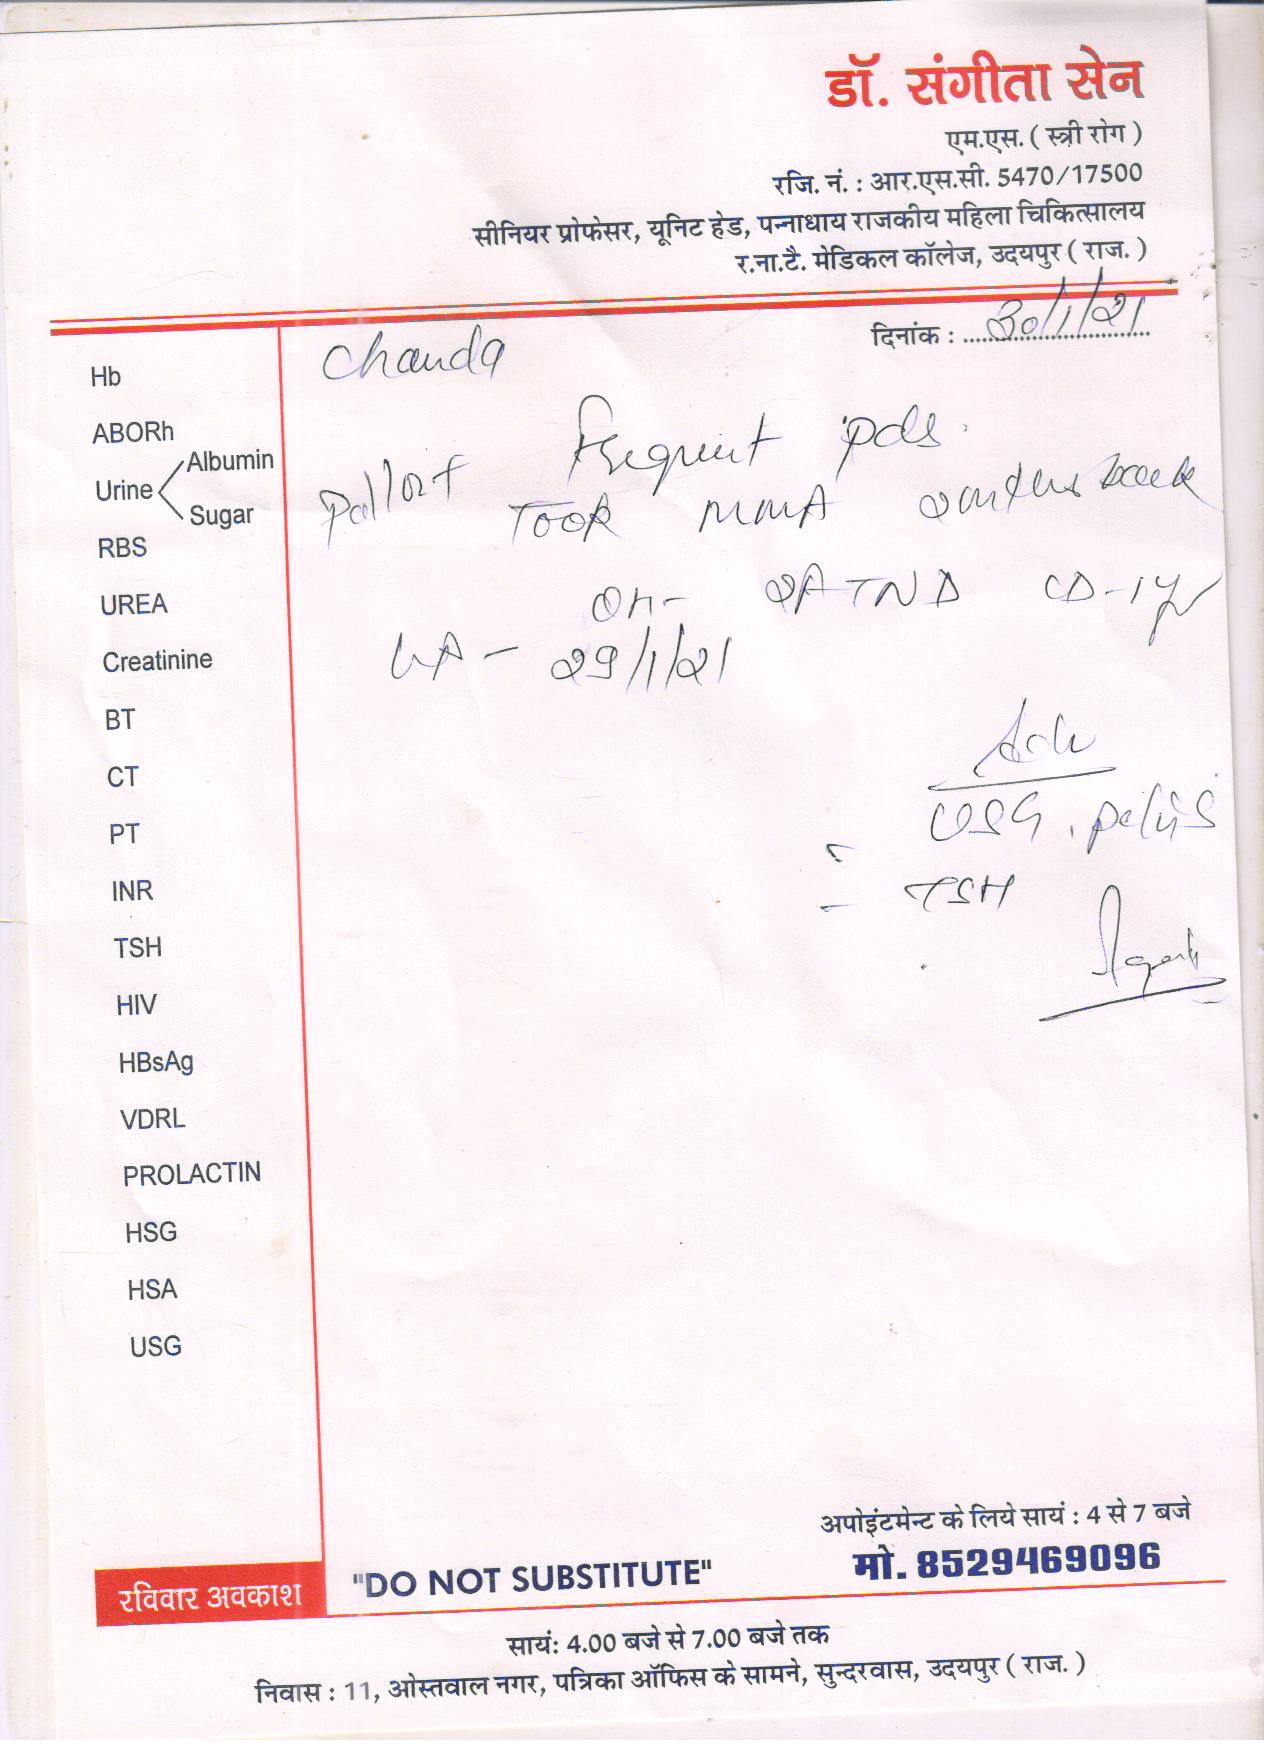 डॉ. संगीता सेन
एम.एस. ( स्त्री रोग )
रजि. नं. : आर.एस.सी. 5470/17500
सीनियर प्रोफेसर, यूनिट हेड, पन्नाधाय राजकीय महिला चिकित्सालय
र.ना.टै. मेडिकल कॉलेज, उदयपुर ( राज. )
दिनांक : 30/1/21
Chanda
Frequent pds.
Pallor+ Took MMA 2 months back
OH- 2FTND CD-1y
29/1/21
Adv
USG. pelvis
TSH
Hb
ABORh
Urine Albumin
Sugar
RBS
UREA
Creatinine
BT
CT
PT
INR
TSH
HIV
HBsAg
VDRL
PROLACTIN
HSG
HSA
USG
अपोइंटमेन्ट के लिये सायं : 4 से 7 बजे
मो. 8529469096
रविवार अवकाश "DO NOT SUBSTITUTE"
सायं: 4.00 बजे से 7.00 बजे तक
निवास : 11, ओस्तवाल नगर, पत्रिका ऑफिस के सामने, सुन्दरवास, उदयपुर ( राज. )